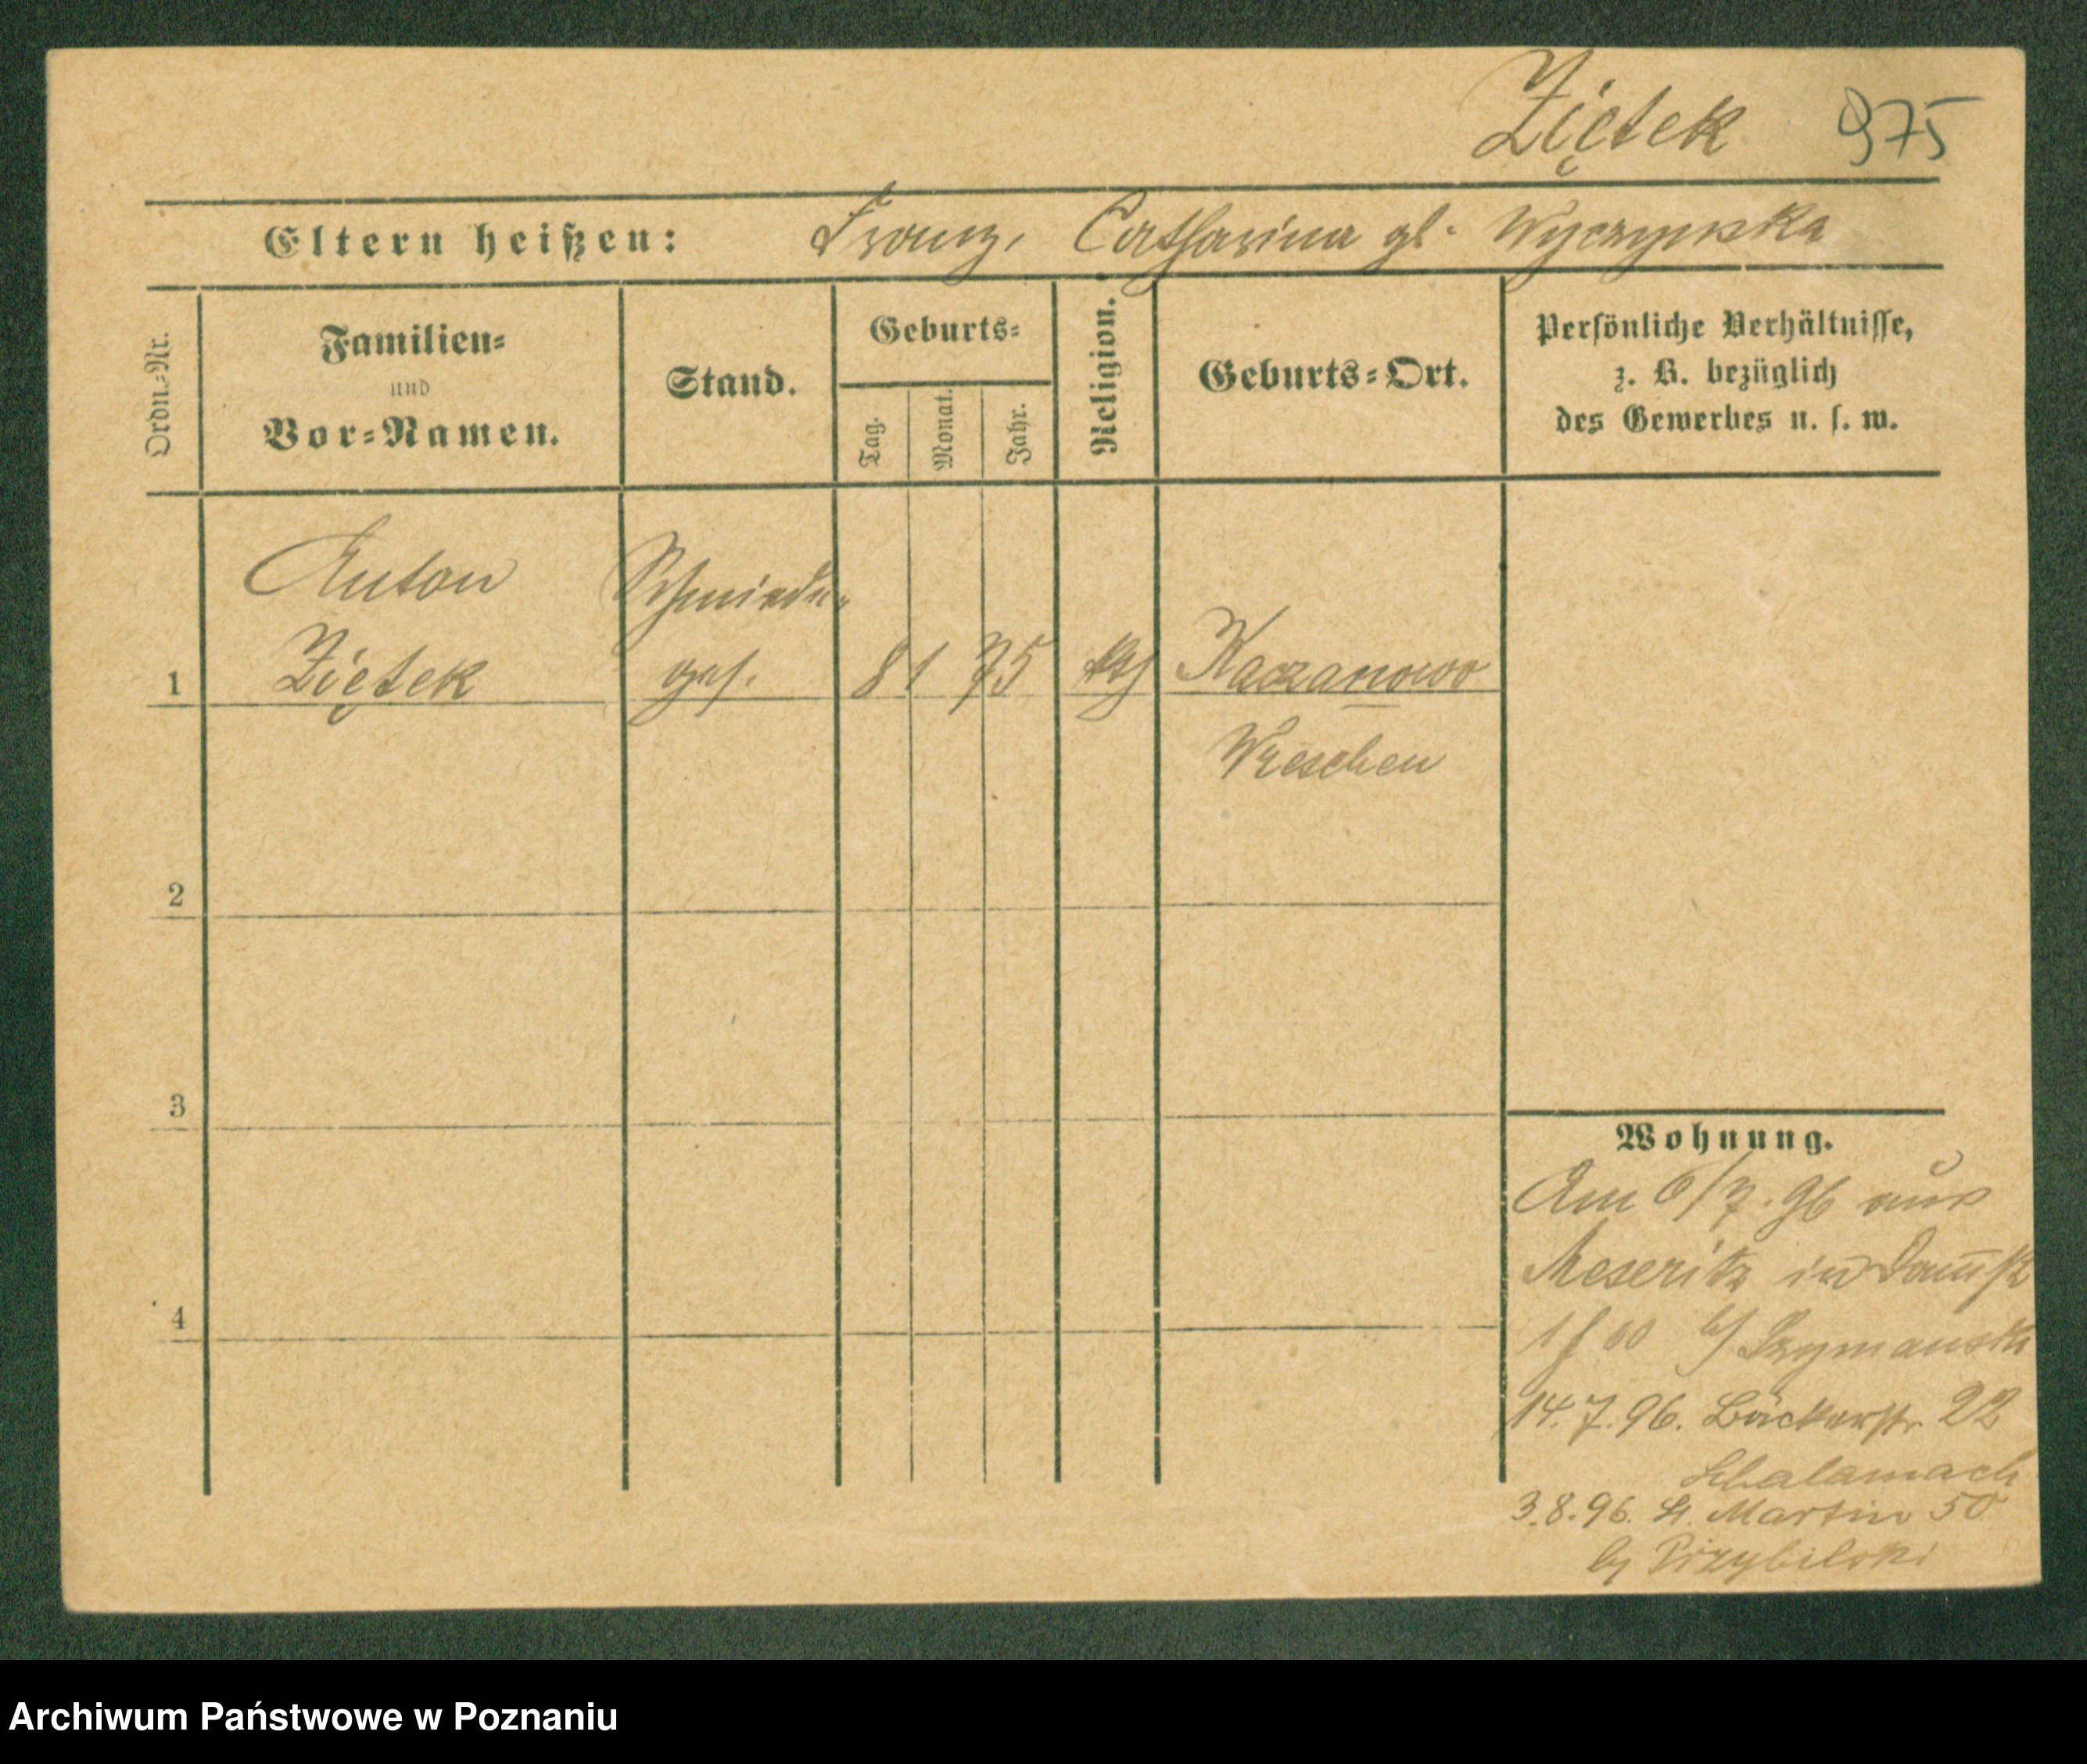 Ziętek 975
Eltern heißen: Franz, Catharina gb. Wyczynska
Ordn.-Nr.
Familien-
und
Vor-Namen.
Stand.
Geburts-
Tag.
Monat.
Jahr.
Religion.
Geburts-Ort.
Persönliche Verhältnisse,
z. B. bezüglich
des Gewerbes u. s. w.
Anton Schmiede-
1 Ziętek ges. 8 1 75 kth Kaczanowo
Wreschen
2
3
4
Wohnung.
Am 6/7.96 aus
Meseritz in
b/ Szymanski
14.7.96. Bäckerstr 22
Schalamach
3.8.96. St. Martin 50
by Przybilski
Archiwum Państwowe w Poznaniu